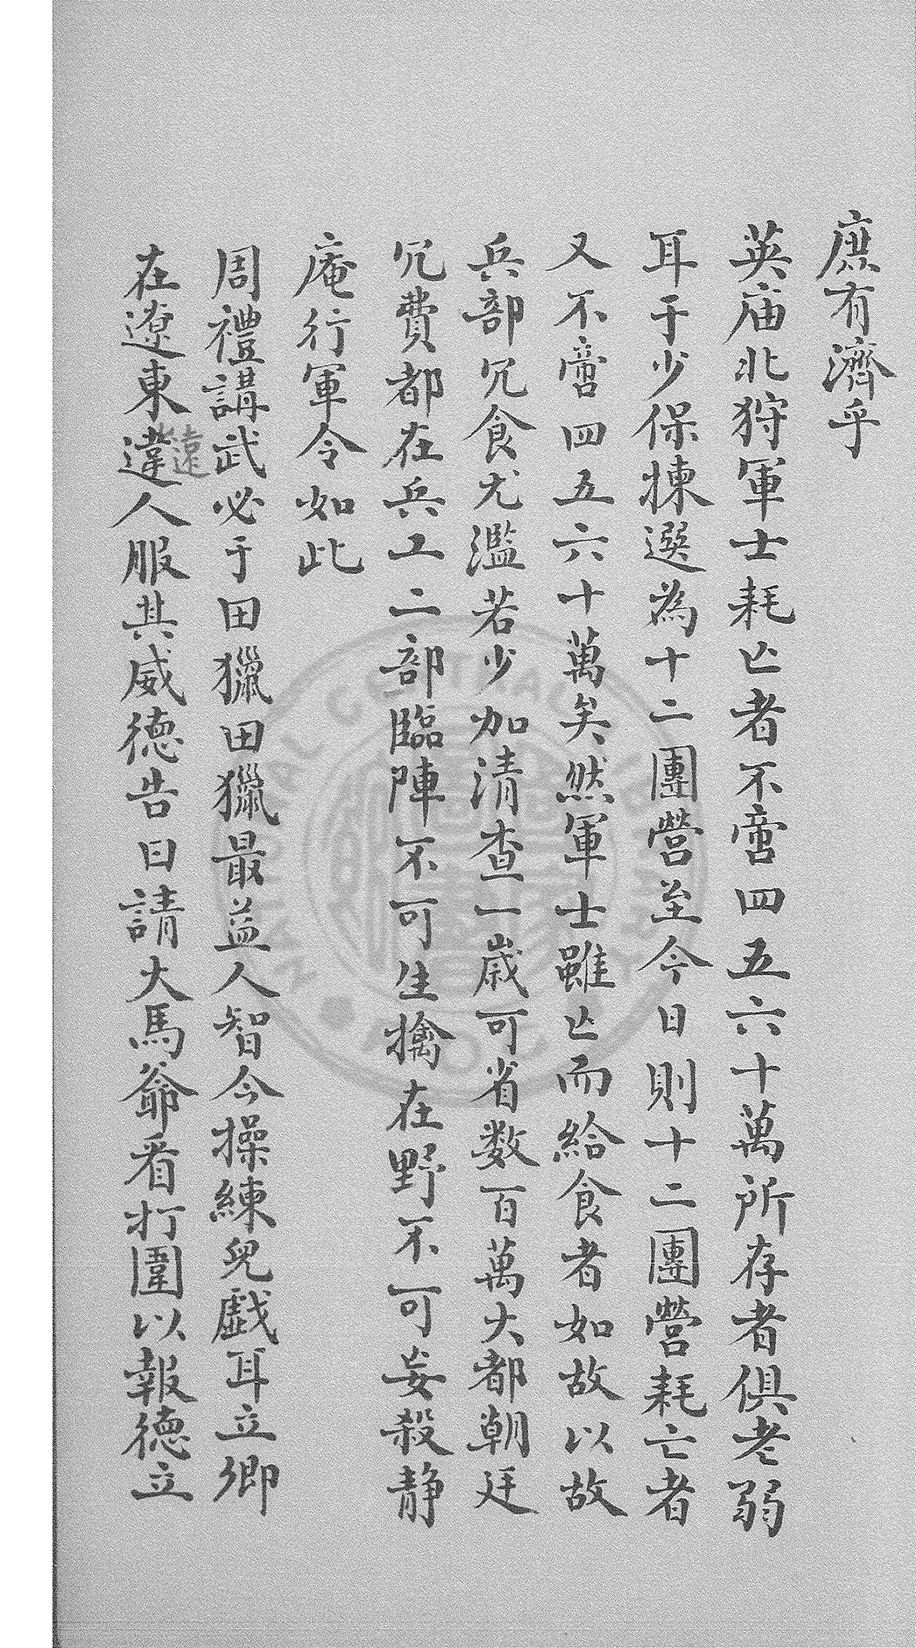 庶有濟乎
英庙北狩軍士耗亾者不啻四五六十萬所存者俱老弱
耳于少保揀選為十二團營至今日則十二團營耗亡者
又不啻四五六十萬矣然軍士雖亾而給食者如故以故
兵部冗食尤濫若少加清查一歲可省数百萬大都朝廷
冗費都在兵工二部臨陣不可生擒在野不可妄殺静
庵行軍令如此
周禮講武必于田獵田獵最益人智今操練兒戯耳立卿
在遼東違人服其威德告曰請大馬爺看打圍以報德立
遠
NATIONAL CENTRAL LIBRARY